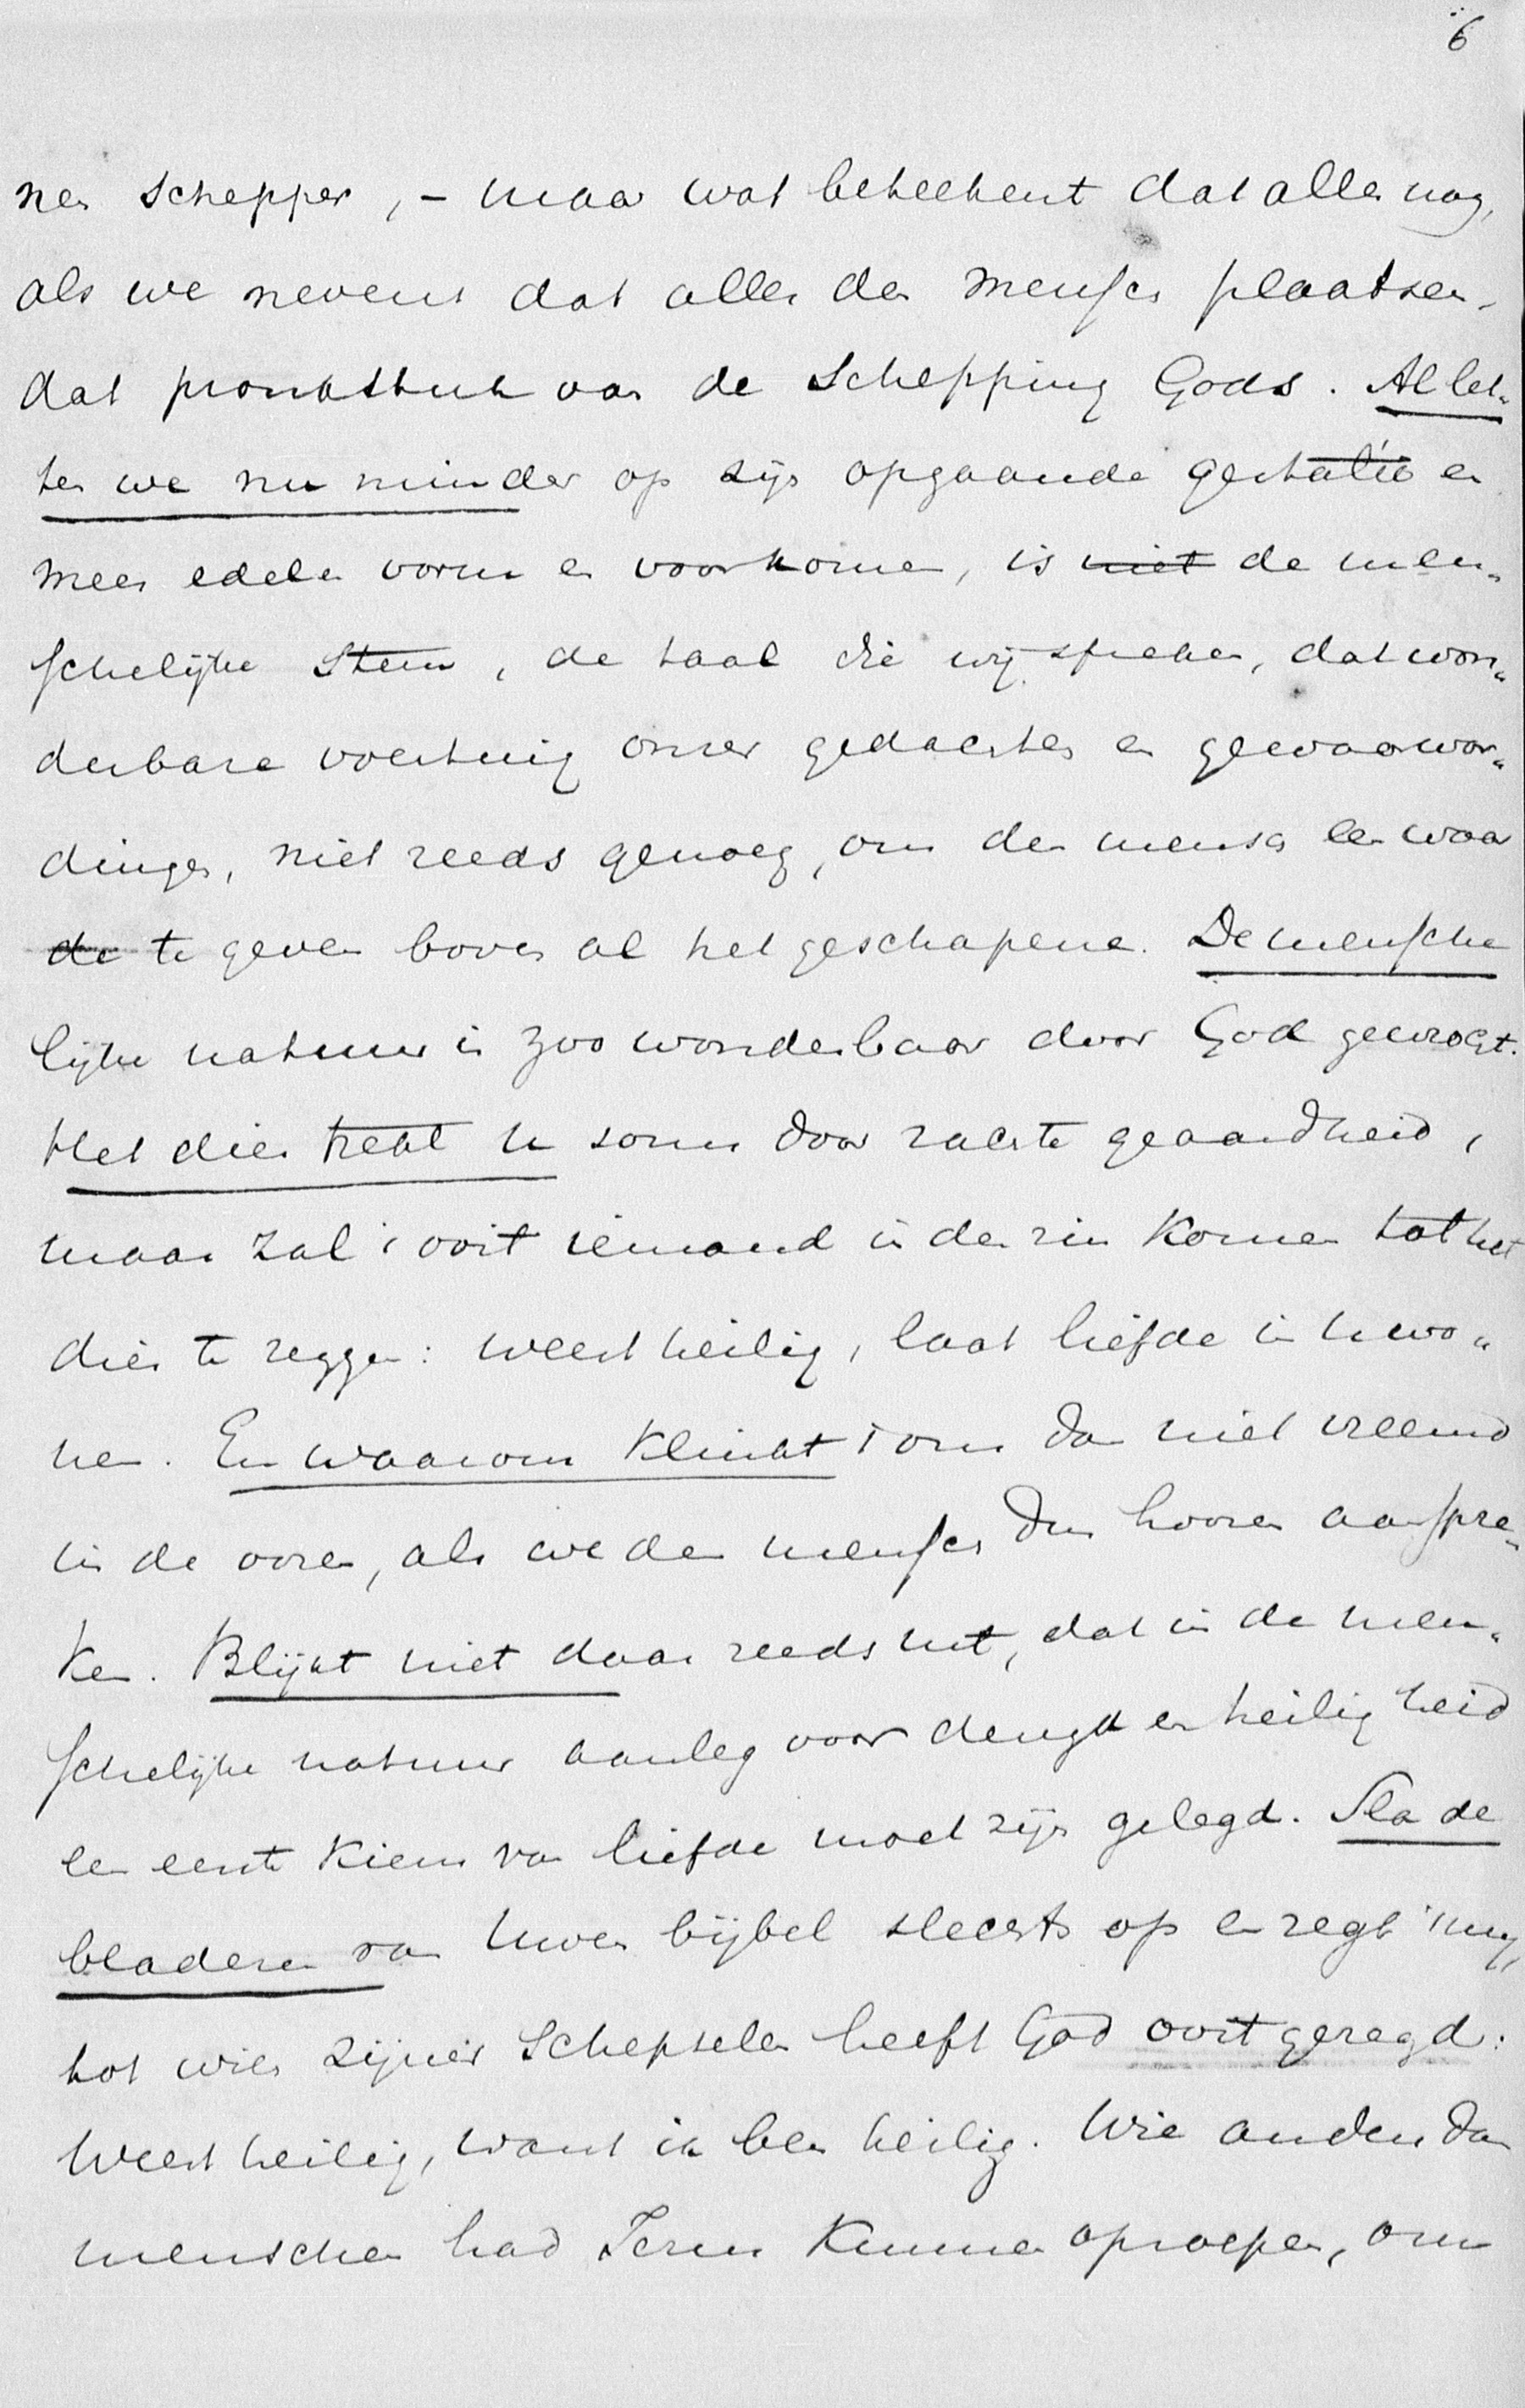 6
nen Schepper, – maar wat beteekent dat alles nog,
als we nevens dat alles den mensch plaatsen,
dat pronkstuk van de Schepping Gods. Al let-
ten we nu minder op zijn opgaande gestalte en
meer edelen vorm en voorkomen, is niet de men-
schelijke Stem, de taal die wij spreken, dat won-
derbare voertuig onzer gedachten en gewaarwor-
dingen, niet reeds genoeg, om den mensch een waar
de te geven boven al het geschapene. De mensche
lijke natuur is zoo wonderbaar door God gewrocht.
Het dier trekt u soms door zachte geaardheid,
maar zal 't ooit iemand in den zin komen tot het
dier te zeggen: weest heilig, laat liefde in u wo-
nen. En waarom klinkt 't ons dan niet vreemd
in de ooren, als we den mensch dus hooren aanspre-
ken. Blijkt niet daar reeds uit, dat in de men-
schelijke natuur aanleg voor deugd en heiligheid
een eerste kiem van liefde moet zijn gelegd. Sla de
bladeren van Uwen bijbel slechts op en zegt 't mij,
tot wien zijner Schepselen heeft God ooit gezegd:
Weest heilig, want ik ben heilig. Wie anders dan
menschen had Jezus kunnen oproepen, om